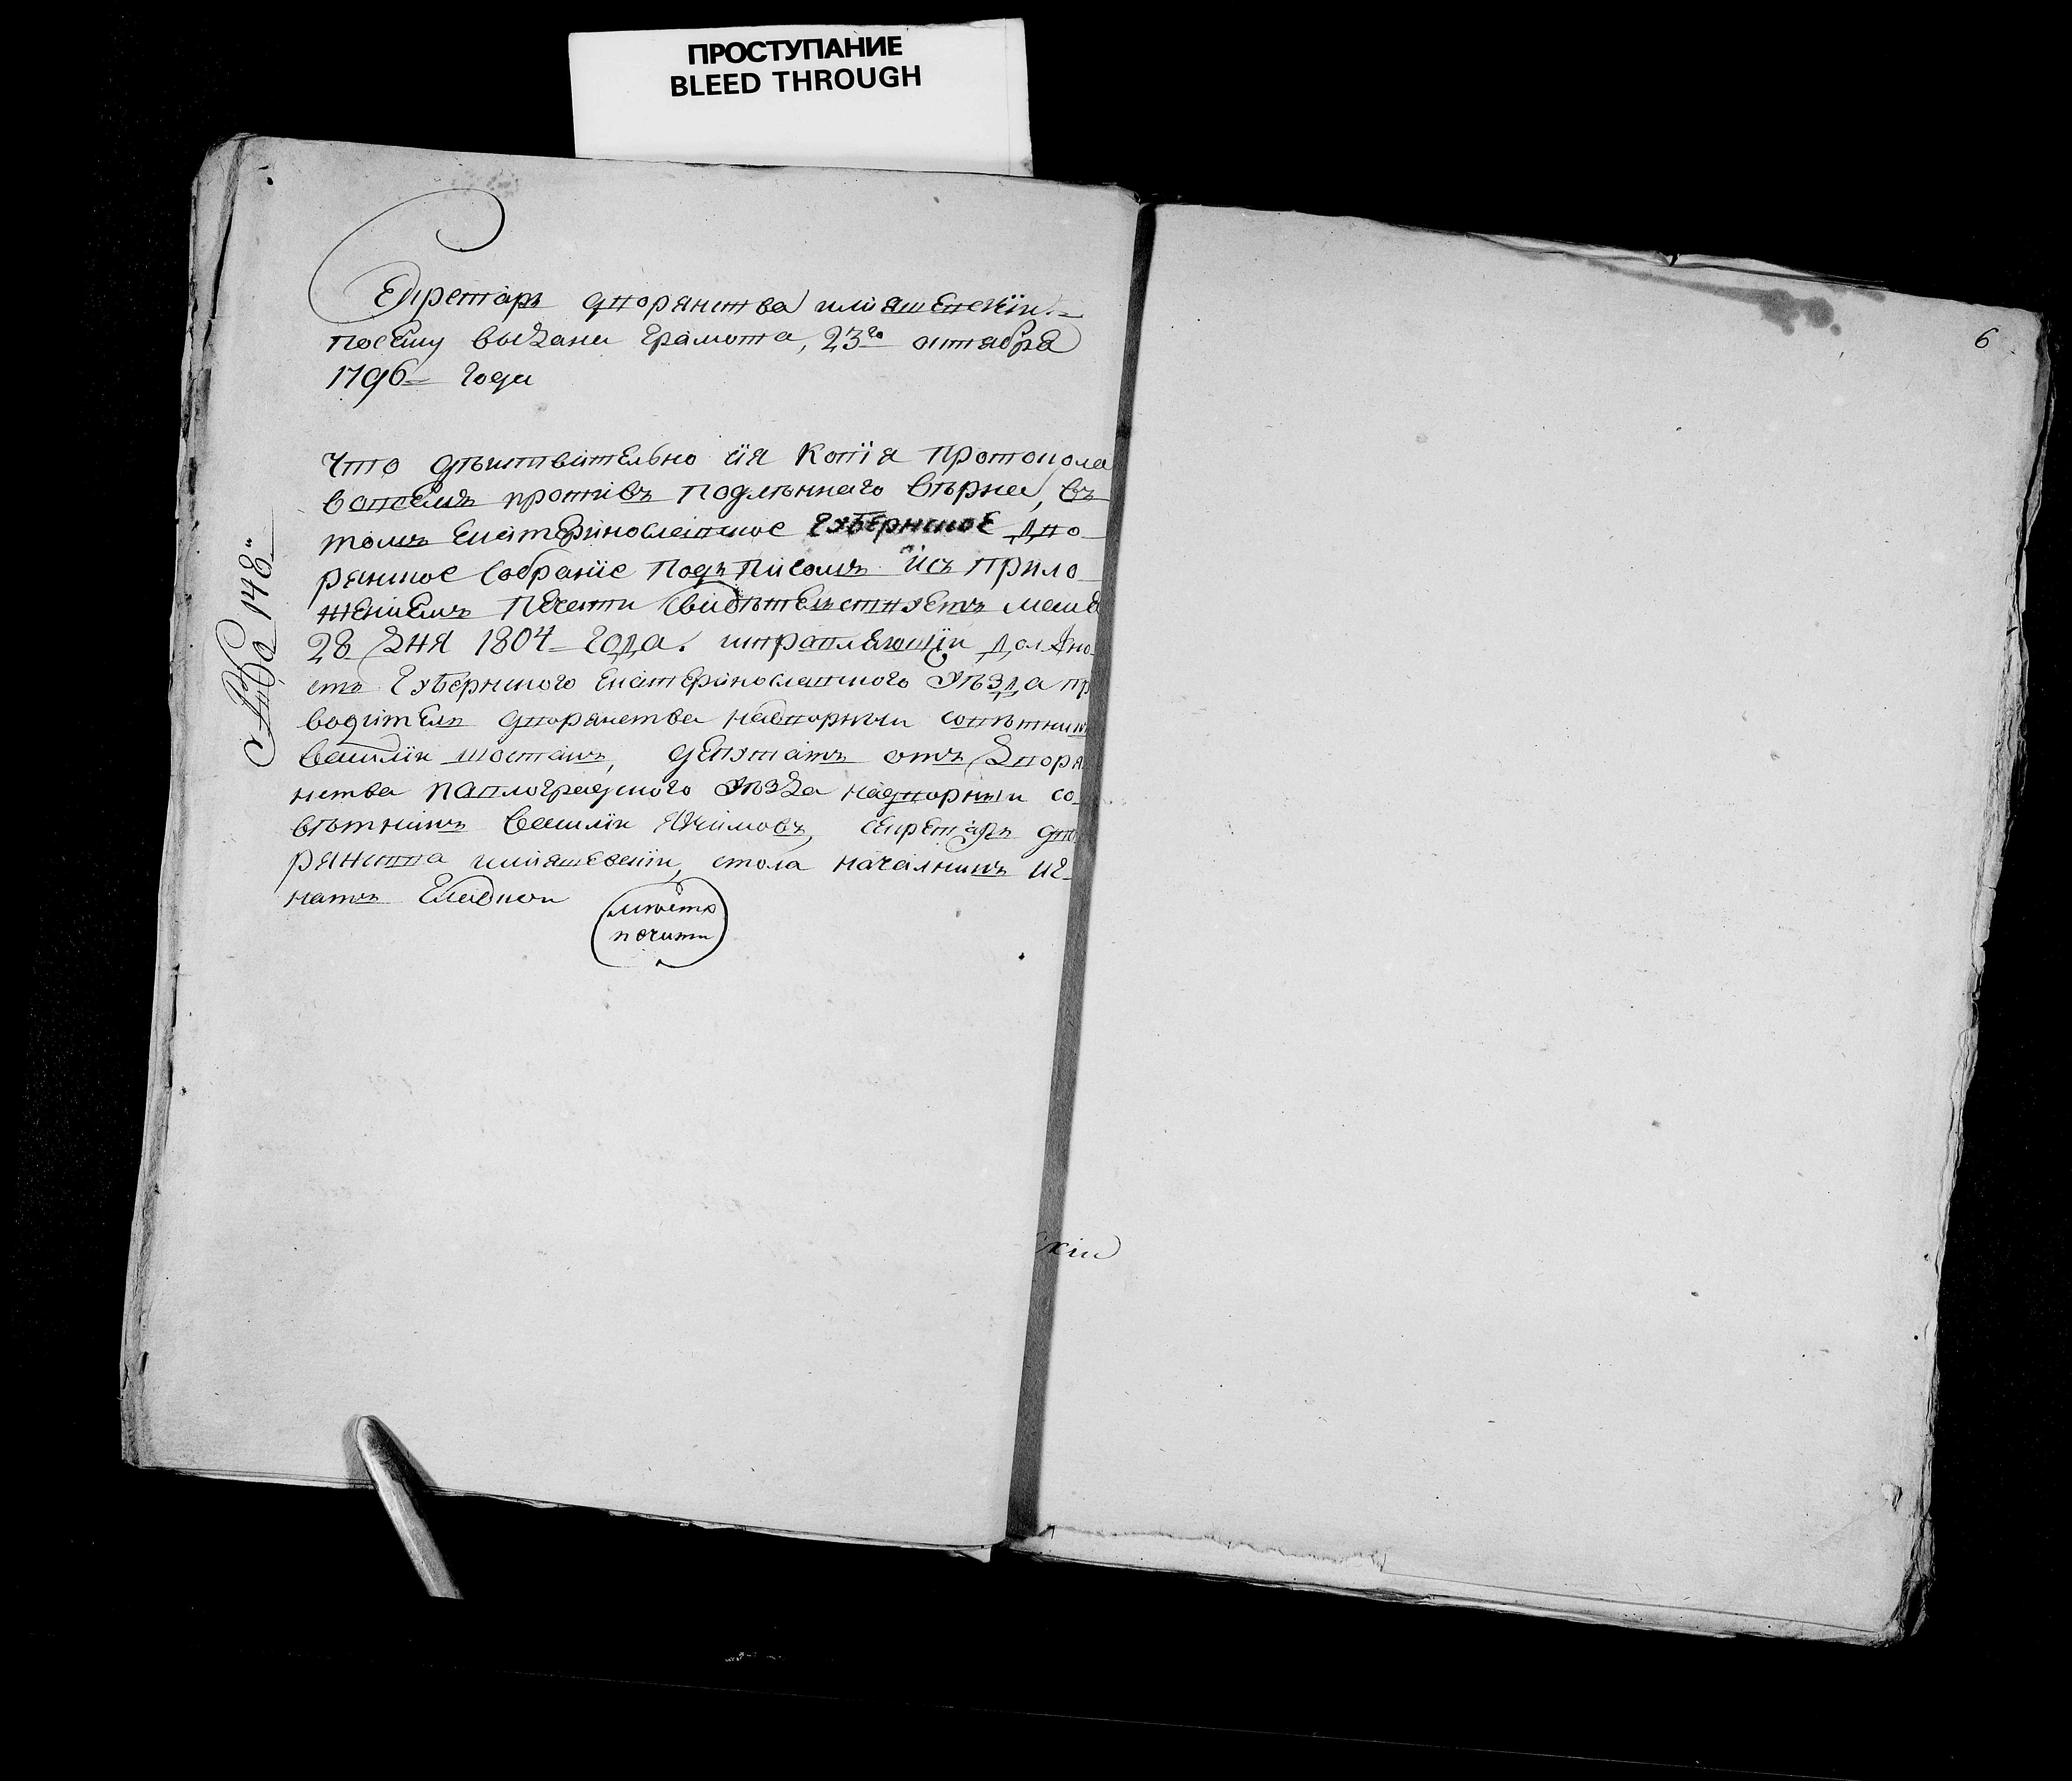 ПРОСТУПАНИЕ
BLEED THROUGH
Секретарь дворянства
посему выдана грамота, 23го октября
1796 года
Что дѣиствително сія копія протокола
вовсемъ противъ подлѣннаго вѣрна, въ
томъ екатеринославское Губернское дво-
рянское собраніе подъписомъ исъ прило-
женіемъ печати свидѣтелствуетъ маия
28 дня 1804 года. исправляющіи должно-
сть Губернского екатеринославского уѣзда пр
водителя дворянства надворныи совѣтник
василіи шостакъ, депутатъ отъ дворя
нства павлоградского уѣзда надворныи со-
вѣтникъ василіи Якимовъ, секретарь дво
рянства, стола началникъ иг-
натъ
мѣсто
печати
148
6